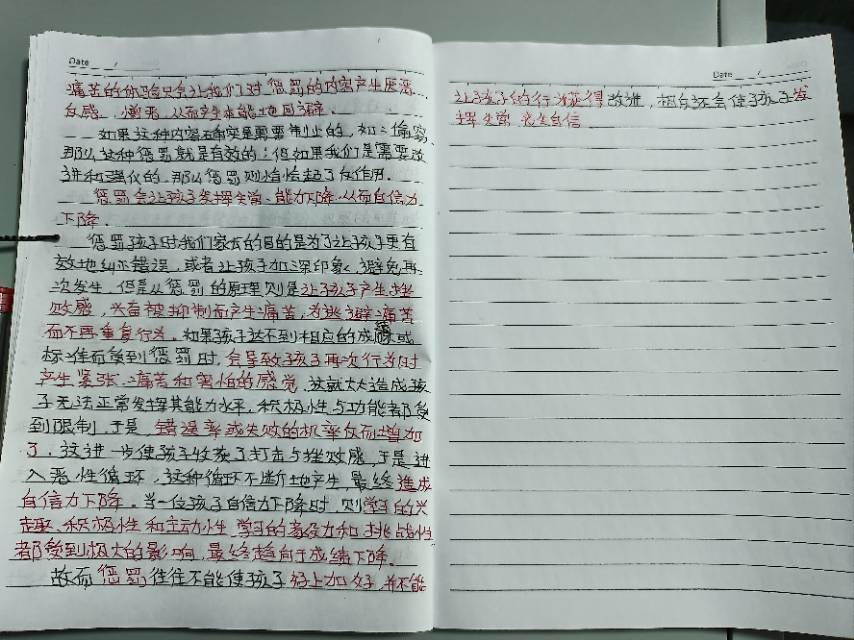 Date /
痛苦的体验只会让我们对惩罚的内容产生厌恶、
反感、憎恶,从而产生本能地回避。
如果这种内容确实是需要制止的,如:偷窃,
那么这种惩罚就是有效的;但如果我们是需要改
进和强化的,那么惩罚则恰恰起了反作用。
惩罚会让孩子发挥失常、能力下降,从而自信力
下降。
惩罚孩子时我们家长的目的是为了让孩子更有
效地纠正错误,或者让孩子加深印象,避免再
次发生,但是从惩罚的原理则是让孩子产生挫
败感,兴奋被抑制而产生痛苦,为逃避痛苦
而不再重复行为。如果孩子达不到相应的成绩或
标准而受到惩罚时,会导致孩子再次行为时
产生紧张、痛苦和害怕的感觉,这就大大造成孩
子无法正常发挥其能力水平,积极性与功能都受
到限制,于是,错误率或失败的机率反而增加
了,这进一步使孩子收获了打击与挫败感,于是进
入恶性循环,这种循环不断地产生,最终造成
自信力下降。当一位孩子自信力下降时,则学习的兴
趣、积极性和主动性,学习的意志力和挑战性
都受到极大的影响,最终趋向于成绩下降。
故而惩罚往往不能使孩子好上加好,并不能
Date /
让孩子的行为获得改进,相反还会使孩子发
挥失常,丧失自信